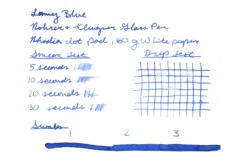 Lamy Blue
Rohrer + Klingner Glass Pen
Rhodia dot pad, 80 g White paper
Smear Test Drip Test
5 seconds
10 seconds
20 seconds
30 seconds
Swabs
1 2 3